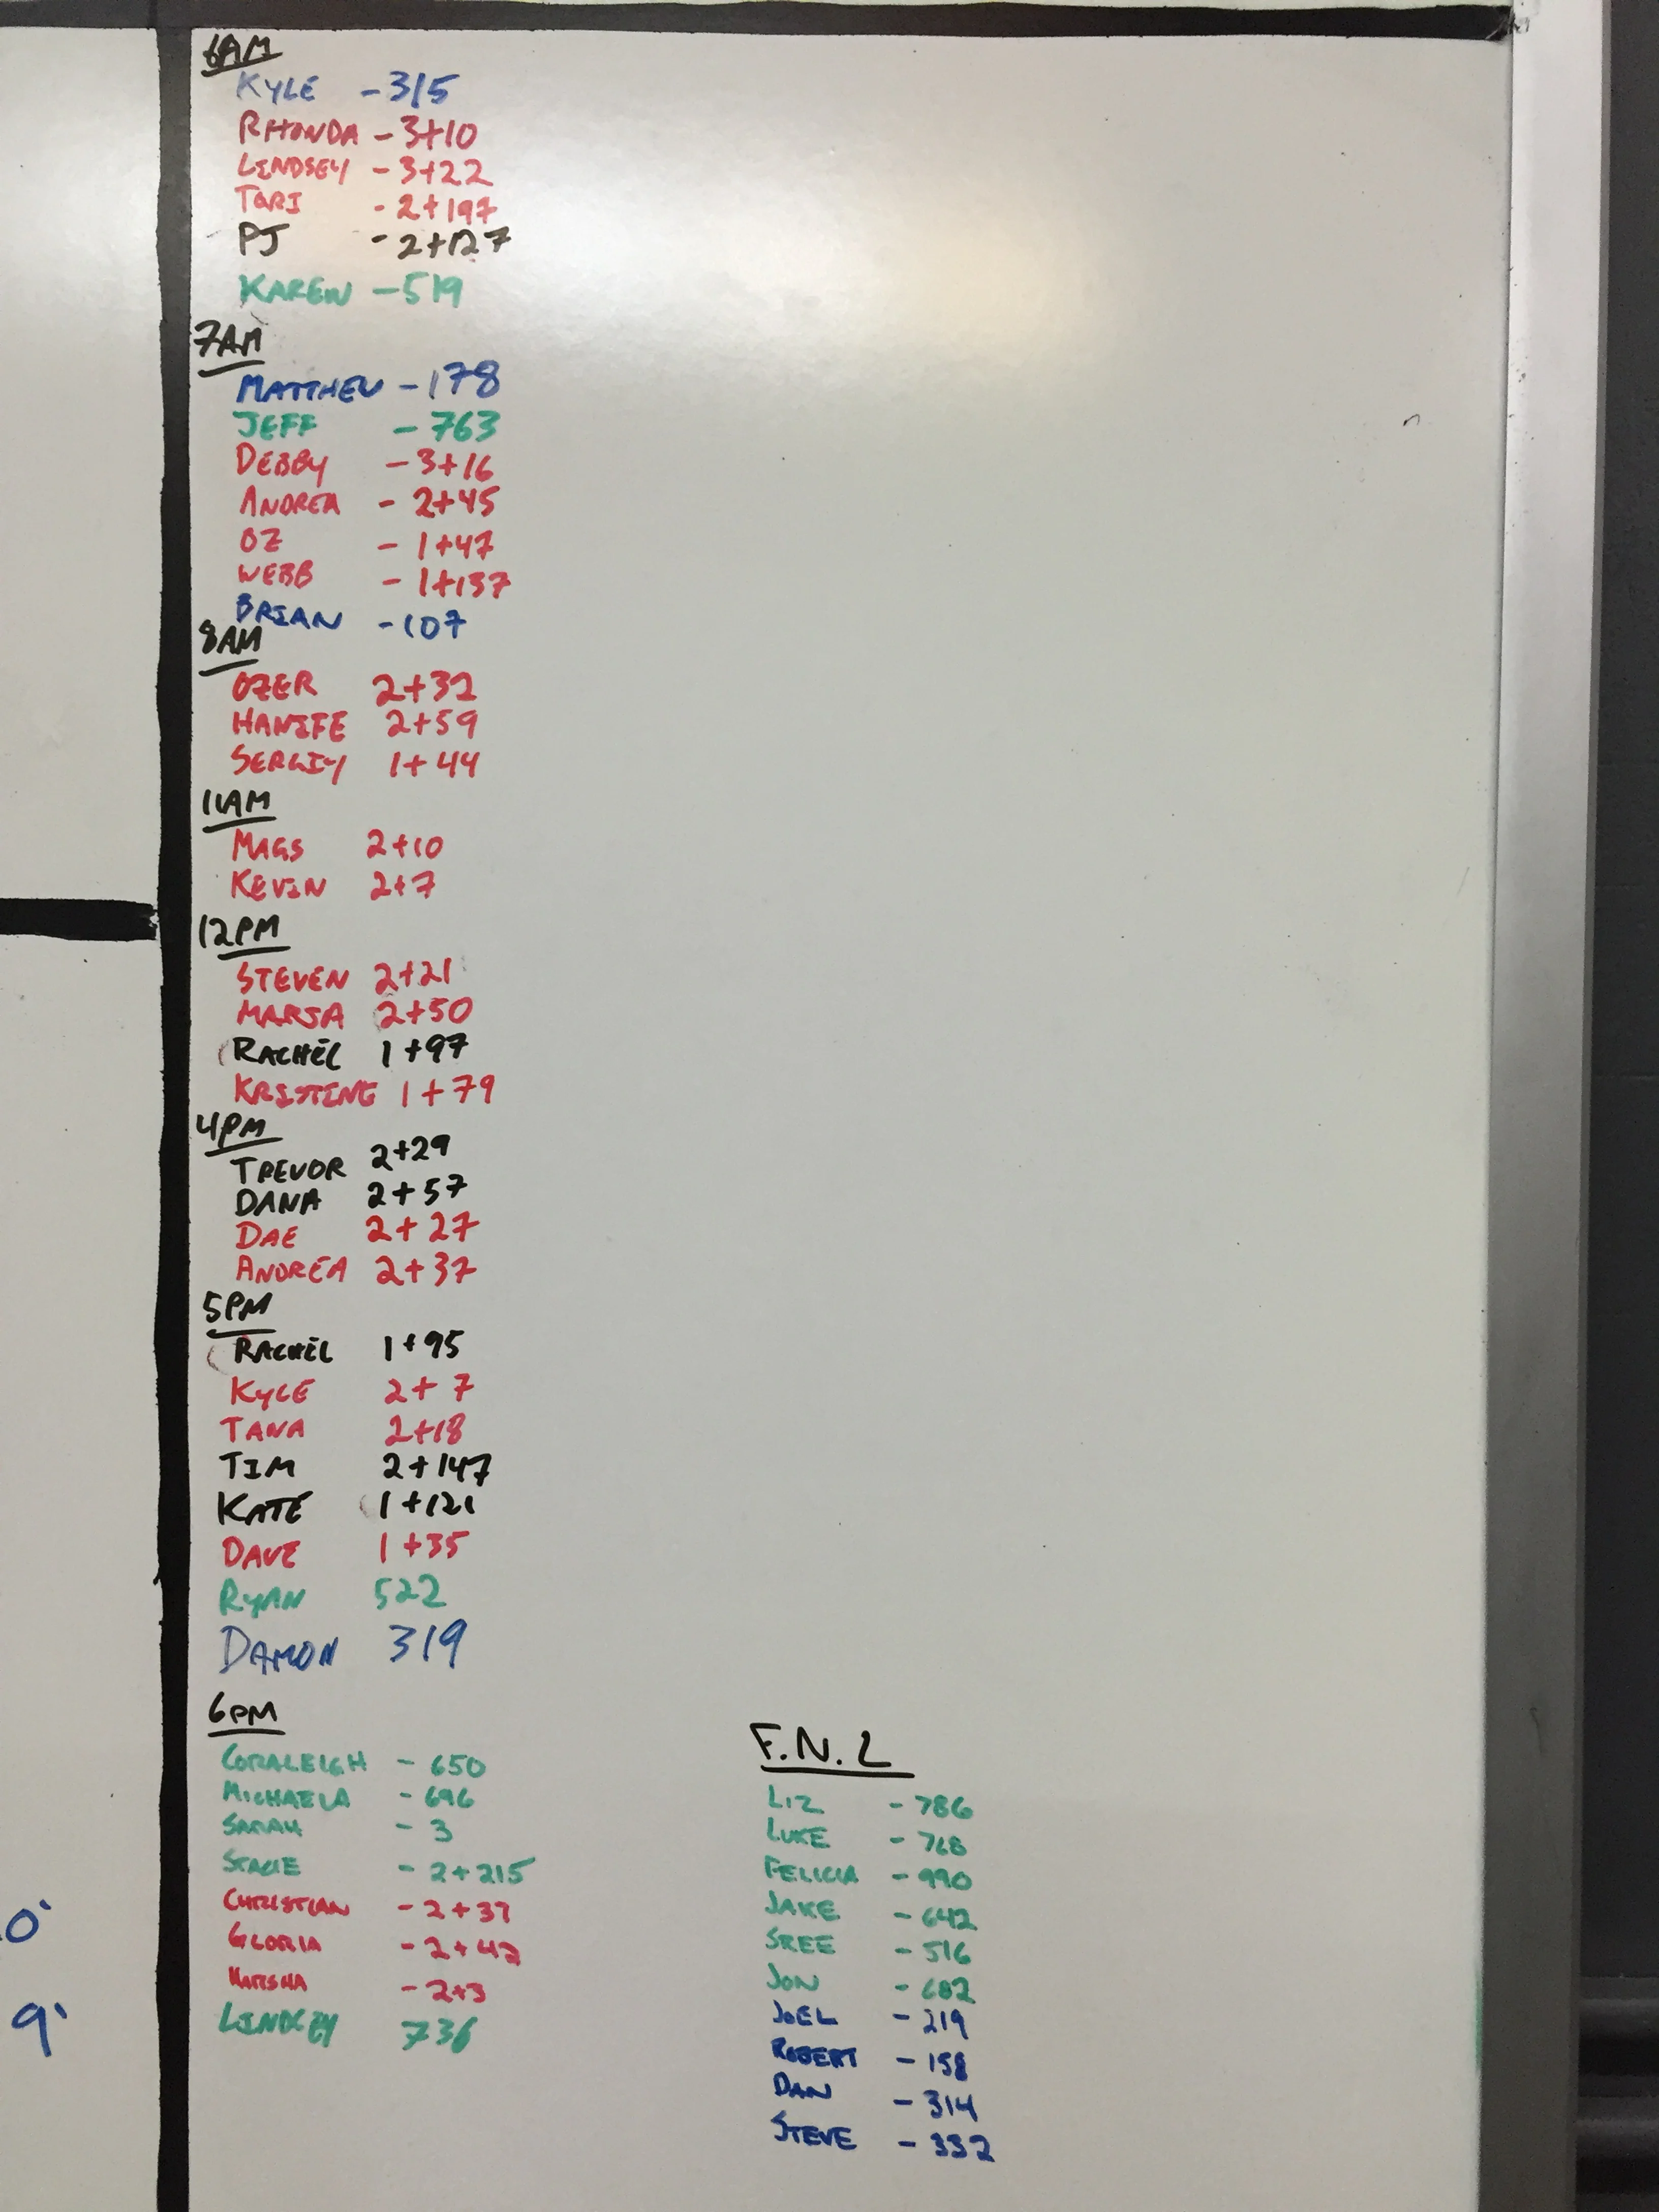 6AM
KYLE - 315
RHONDA - 3+10
LINDSEY - 3+22
TORI - 2+197
PJ - 2+127
KAREN - 519
7AM
MATTHEW - 178
JEFF - 763
DEBBY - 3+16
ANDREA - 2+45
OZ - 1+47
WEBB - 1+137
BRIAN - 107
8AM
OZER 2+32
HANIFE 2+59
SERGIY 1+44
11AM
MAGS 2+10
KEVIN 2+7
12PM
STEVEN 2+21
MARSA 2+50
RACHEL 1+97
KRISTINE 1+79
4PM
TREVOR 2+29
DANA 2+57
DAE 2+27
ANDREA 2+37
5PM
RACHEL 1+95
KYLE 2+7
TANA 2+18
TIM 2+147
KATE 1+121
DAVE 1+35
RYAN 522
DAMON 319
6PM
CORALEIGH - 650
MICHAELA - 696
SARAH - 3
STACIE - 2+215
CHRISTIAN - 2+37
GLORIA - 2+42
MARSHA - 2+3
LINDSEY 736
F.N.L
LIZ - 786
LUKE - 768
FELICIA - 990
JAKE - 642
SREE - 516
JON - 682
JOEL - 219
ROBERT - 158
DAN - 314
STEVE - 332
0'
9'